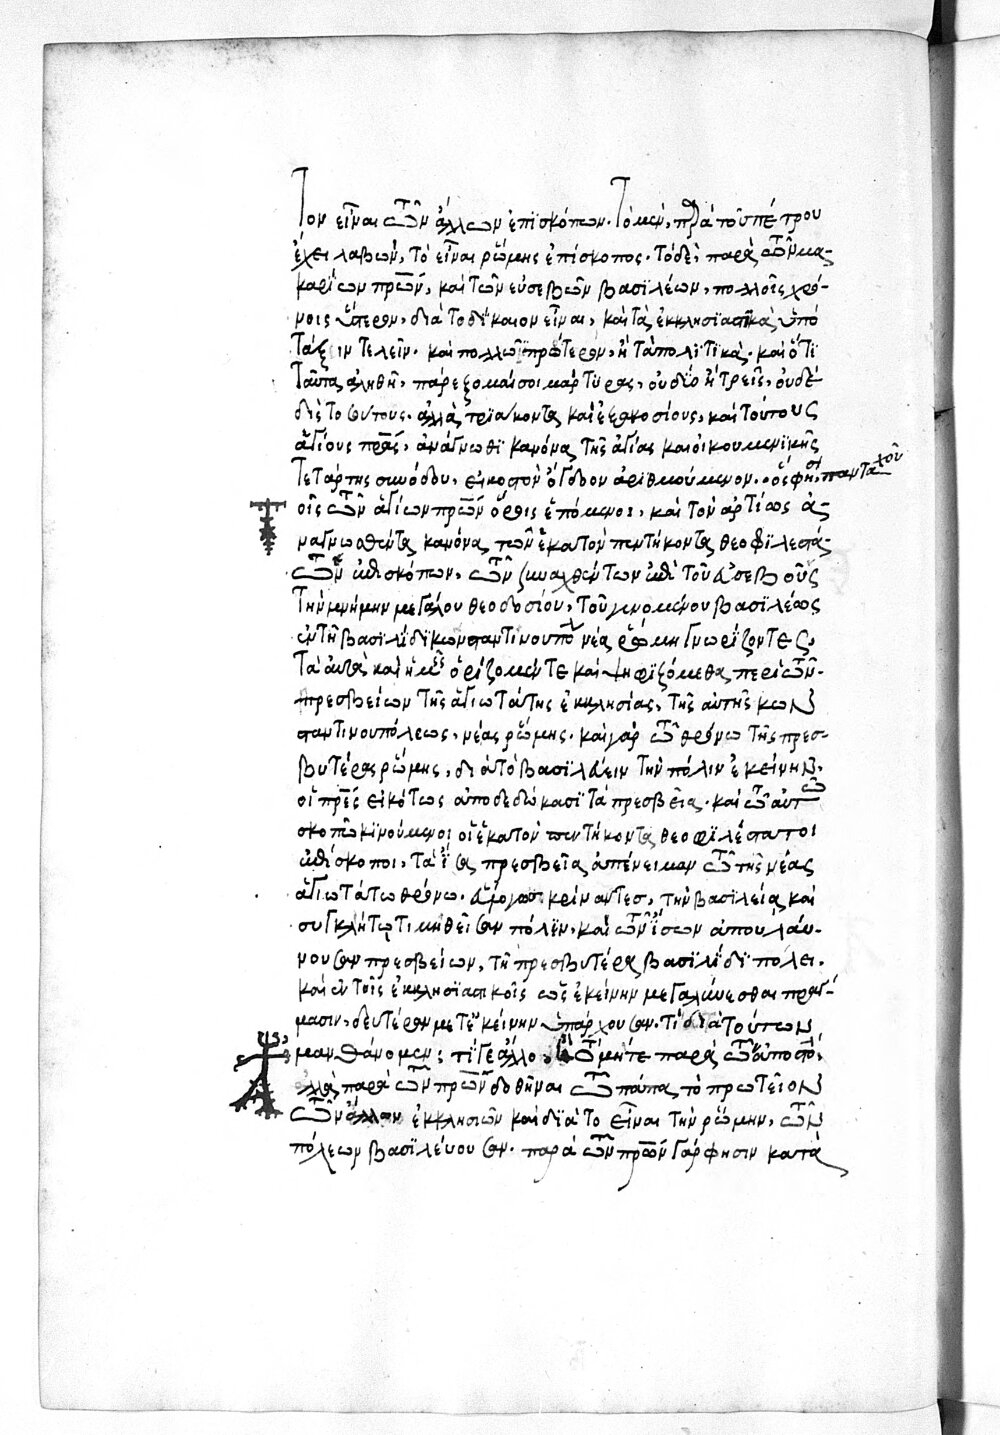 τον εἶναι τῶν ἄλλων ἐπισκόπων. Τὸ μὲν, παρὰ τοῦ πέτρου
ἔχει λαβὼν, τὸ εἶναι ῥώμης ἐπίσκοπος. Τὸ δὲ, παρὰ τῶν μα-
καρίων πρων, καὶ τῶν εὐσεβῶν βασιλέων, πολλοῖς χρό-
νοις ὕστερον, διὰ τὸ δίκαιον εἶναι, καὶ τὰ ἐκκλησιαστικὰ ὑπὸ
τάξιν τελεῖν. καὶ πολλῶ πρότερον, ἢ τὰ πολιτικὰ. καὶ ὅτι
ταῦτα ἀληθῆ, παρέξομαί σοι μάρτυρας, οὐ δύο ἢ τρεῖς, οὐδὲ
δὶς τοσούτους. ἀλλὰ τριάκοντα καὶ ἑξακοσίους, καὶ τούτους
ἁγίους πρας, ἀνάγνωθι κανόνα τῆς ἁγίας καὶ οἰκουμενικῆς
τετάρτης συνόδου, εἰκοστὸν ὄγδοον ἀριθμούμενον. ὅς φησι, πανταχοῦ
τοῖς τῶν ἁγίων πρων ὅροις ἑπόμενοι, καὶ τὸν ἀρτίως ἀ-
ναγνωσθέντα κανόνα τῶν ἑκατὸν πεντήκοντα θεοφιλεστά-
των ἐπισκόπων, τῶν συναχθέντων ἐπὶ τοῦ εὐσεβοῦς
τὴν μνήμην μεγάλου θεοδοσίου, τοῦ γενομένου βασιλέως
ἐν τῆ βασιλίδι κωνσταντινουπόλ νέα ῥώμη γνωρίζοντες,
τὰ αὐτὰ καὶ ἡμεῖς ὁρίζομέν τε καὶ ψηφιζόμεθα περὶ τῶν
πρεσβείων τῆς ἁγιωτάτης ἐκκλησίας, τῆς αὐτῆς κων
σταντινουπόλεως, νέας ῥώμης. καὶ γὰρ τῶ θρόνω τῆς πρεσ-
βυτέρας ῥώμης, διὰ τὸ βασιλεύειν τὴν πόλιν ἐκείνην,
οἱ πρες εἰκότως ἀποδεδώκασι τὰ πρεσβεῖα. καὶ τῶ αὐτῶ
σκοπῶ κινούμενοι οἱ ἑκατὸν πεντήκοντα θεοφιλέστατοι
ἐπίσκοποι, τὰ ἴσα πρεσβεῖα ἀπένειμαν τῶ τῆς νέας
ἁγιωτάτω θρόνω. εὐλόγως κρίναντες, τὴν βασιλεία καὶ
συγκλήτω τιμηθεῖσαν πόλιν, καὶ τῶν ἴσων ἀπολαύ-
νουσαν πρεσβείων, τῆ πρεσβυτέρα βασιλίδι πόλει.
καὶ ἐν τοῖς ἐκκλησιαστικοῖς ὡς ἐκείνην μεγαλύνεσθαι πράγ-
μασιν, δευτέραν μετ' ἐκείνην ὑπάρχουσαν. τί διὰ τούτων
μανθάνομεν; τί γε ἄλλο, ἢ τὸ μήτε παρὰ τῶν ἀποστόλ
ἀλλὰ παρὰ τῶν πρων δοθῆναι τῶ πάπα τὸ πρωτεῖον
τῶν ἄλλων ἐκκλησιῶν καὶ διὰ τὸ εἶναι τὴν ῥώμην, τῶν
πόλεων βασιλεύουσαν. παρὰ τῶν πρων γάρ φησιν κατὰ